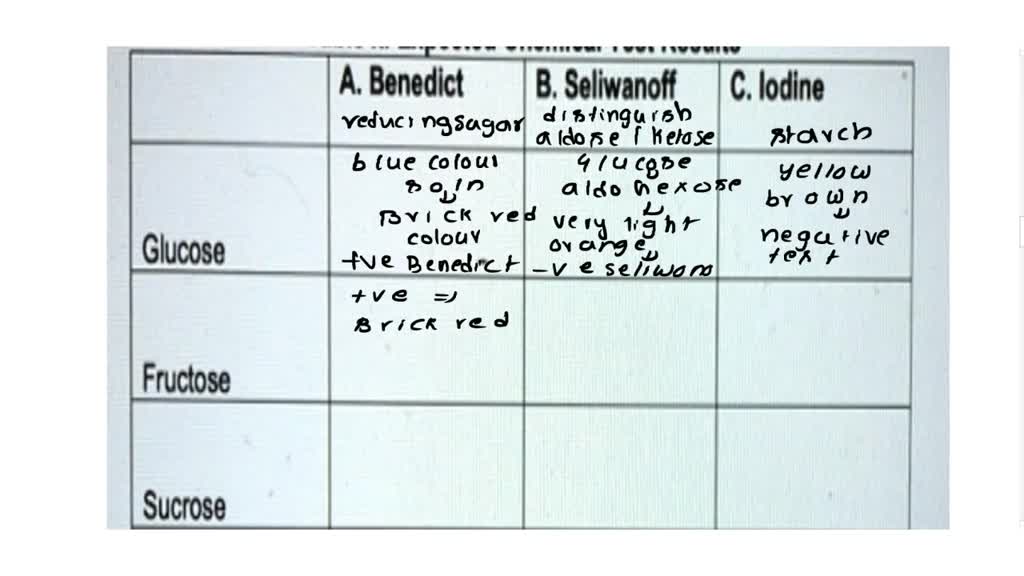 Expected Chemical Test Results
A. Benedict
B. Seliwanoff
C. Iodine
reducing sugar
distinguish
aldose / ketose
starch
Glucose
blue colour
soln
Brick red
colour
+ve Benedict
Glucose
aldo hexose
very light
orange
-ve seliwano
yellow
brown
negative
text
Fructose
+ve ⇒
Brick red
Sucrose